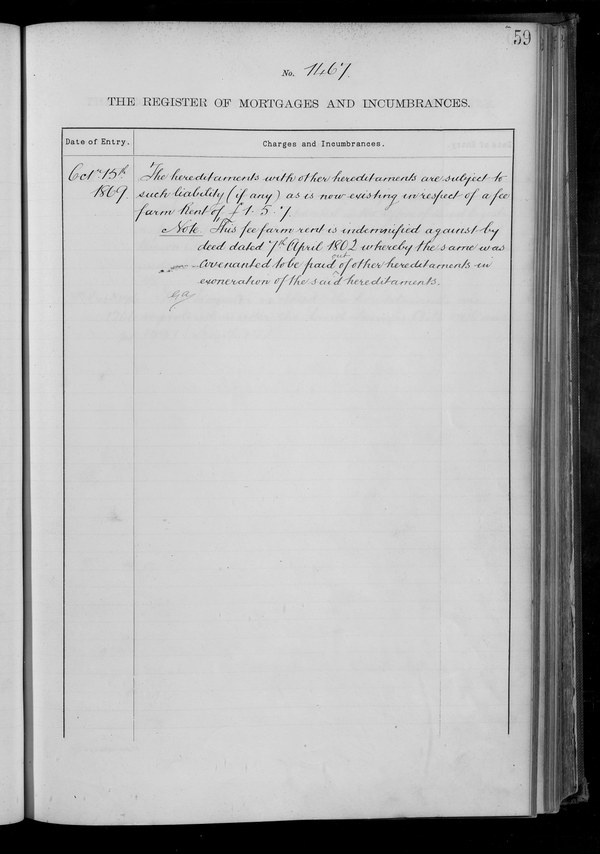 59
No. 1467.
THE REGISTER OF MORTGAGES AND INCUMBRANCES.
Date of Entry.
Charges and Incumbrances.
Octr. 15th
1869
The hereditaments with other hereditaments are subject to
such liability (if any) as is now existing in respect of a fee
farm Rent of £1. 5. 7.
Note This fee farm rent is indemnified against by
deed dated 7th April 1802 whereby the same was
covenanted to be paid out of other hereditaments in
exoneration of the said hereditaments.